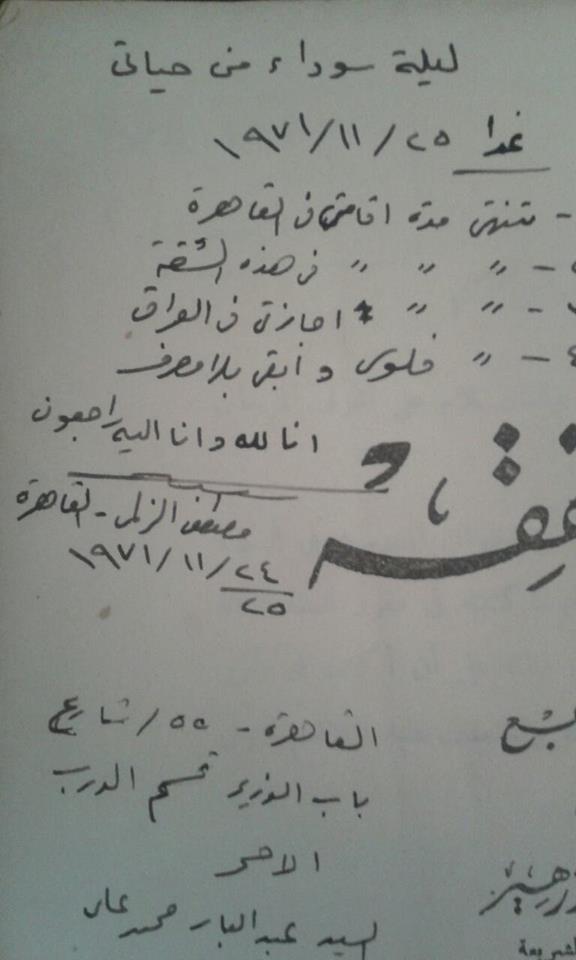 ليلة سوداء من حياتي
غدا ٢٥/١١/١٩٧١
- تنتهي مدة اقامتي في القاهرة
- " " " في هذه الشقة
- " " اجازتي في العراق
٤- " فلوسي وأبقى بلا مصرف
انا لله وانا اليه راجعون
مصطفى الزلمي - القاهرة
٢٤/١١/١٩٧١
٢٥
القاهرة - ٥٥/شارع
باب الوزير قسم الدرب
الاحمر
السيد عبد البار محمد علي